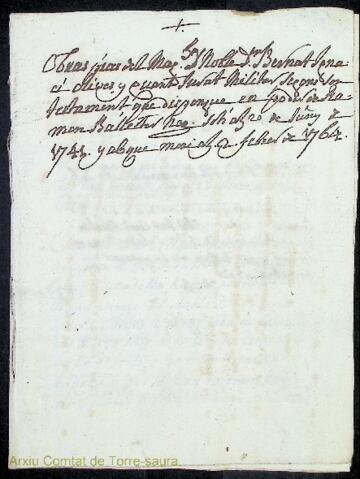 +
Obras pias del Mag.ch Y Noble Sr. Bernat Igna
ci Olives y Quart Jurat Militar segons son
testament que disposque en poder de Ra
mon Ballester Not. als de Juriy de
1741. y abque mori als 2 febrer de 1764.
Arxiu Comtat de Torre-saura